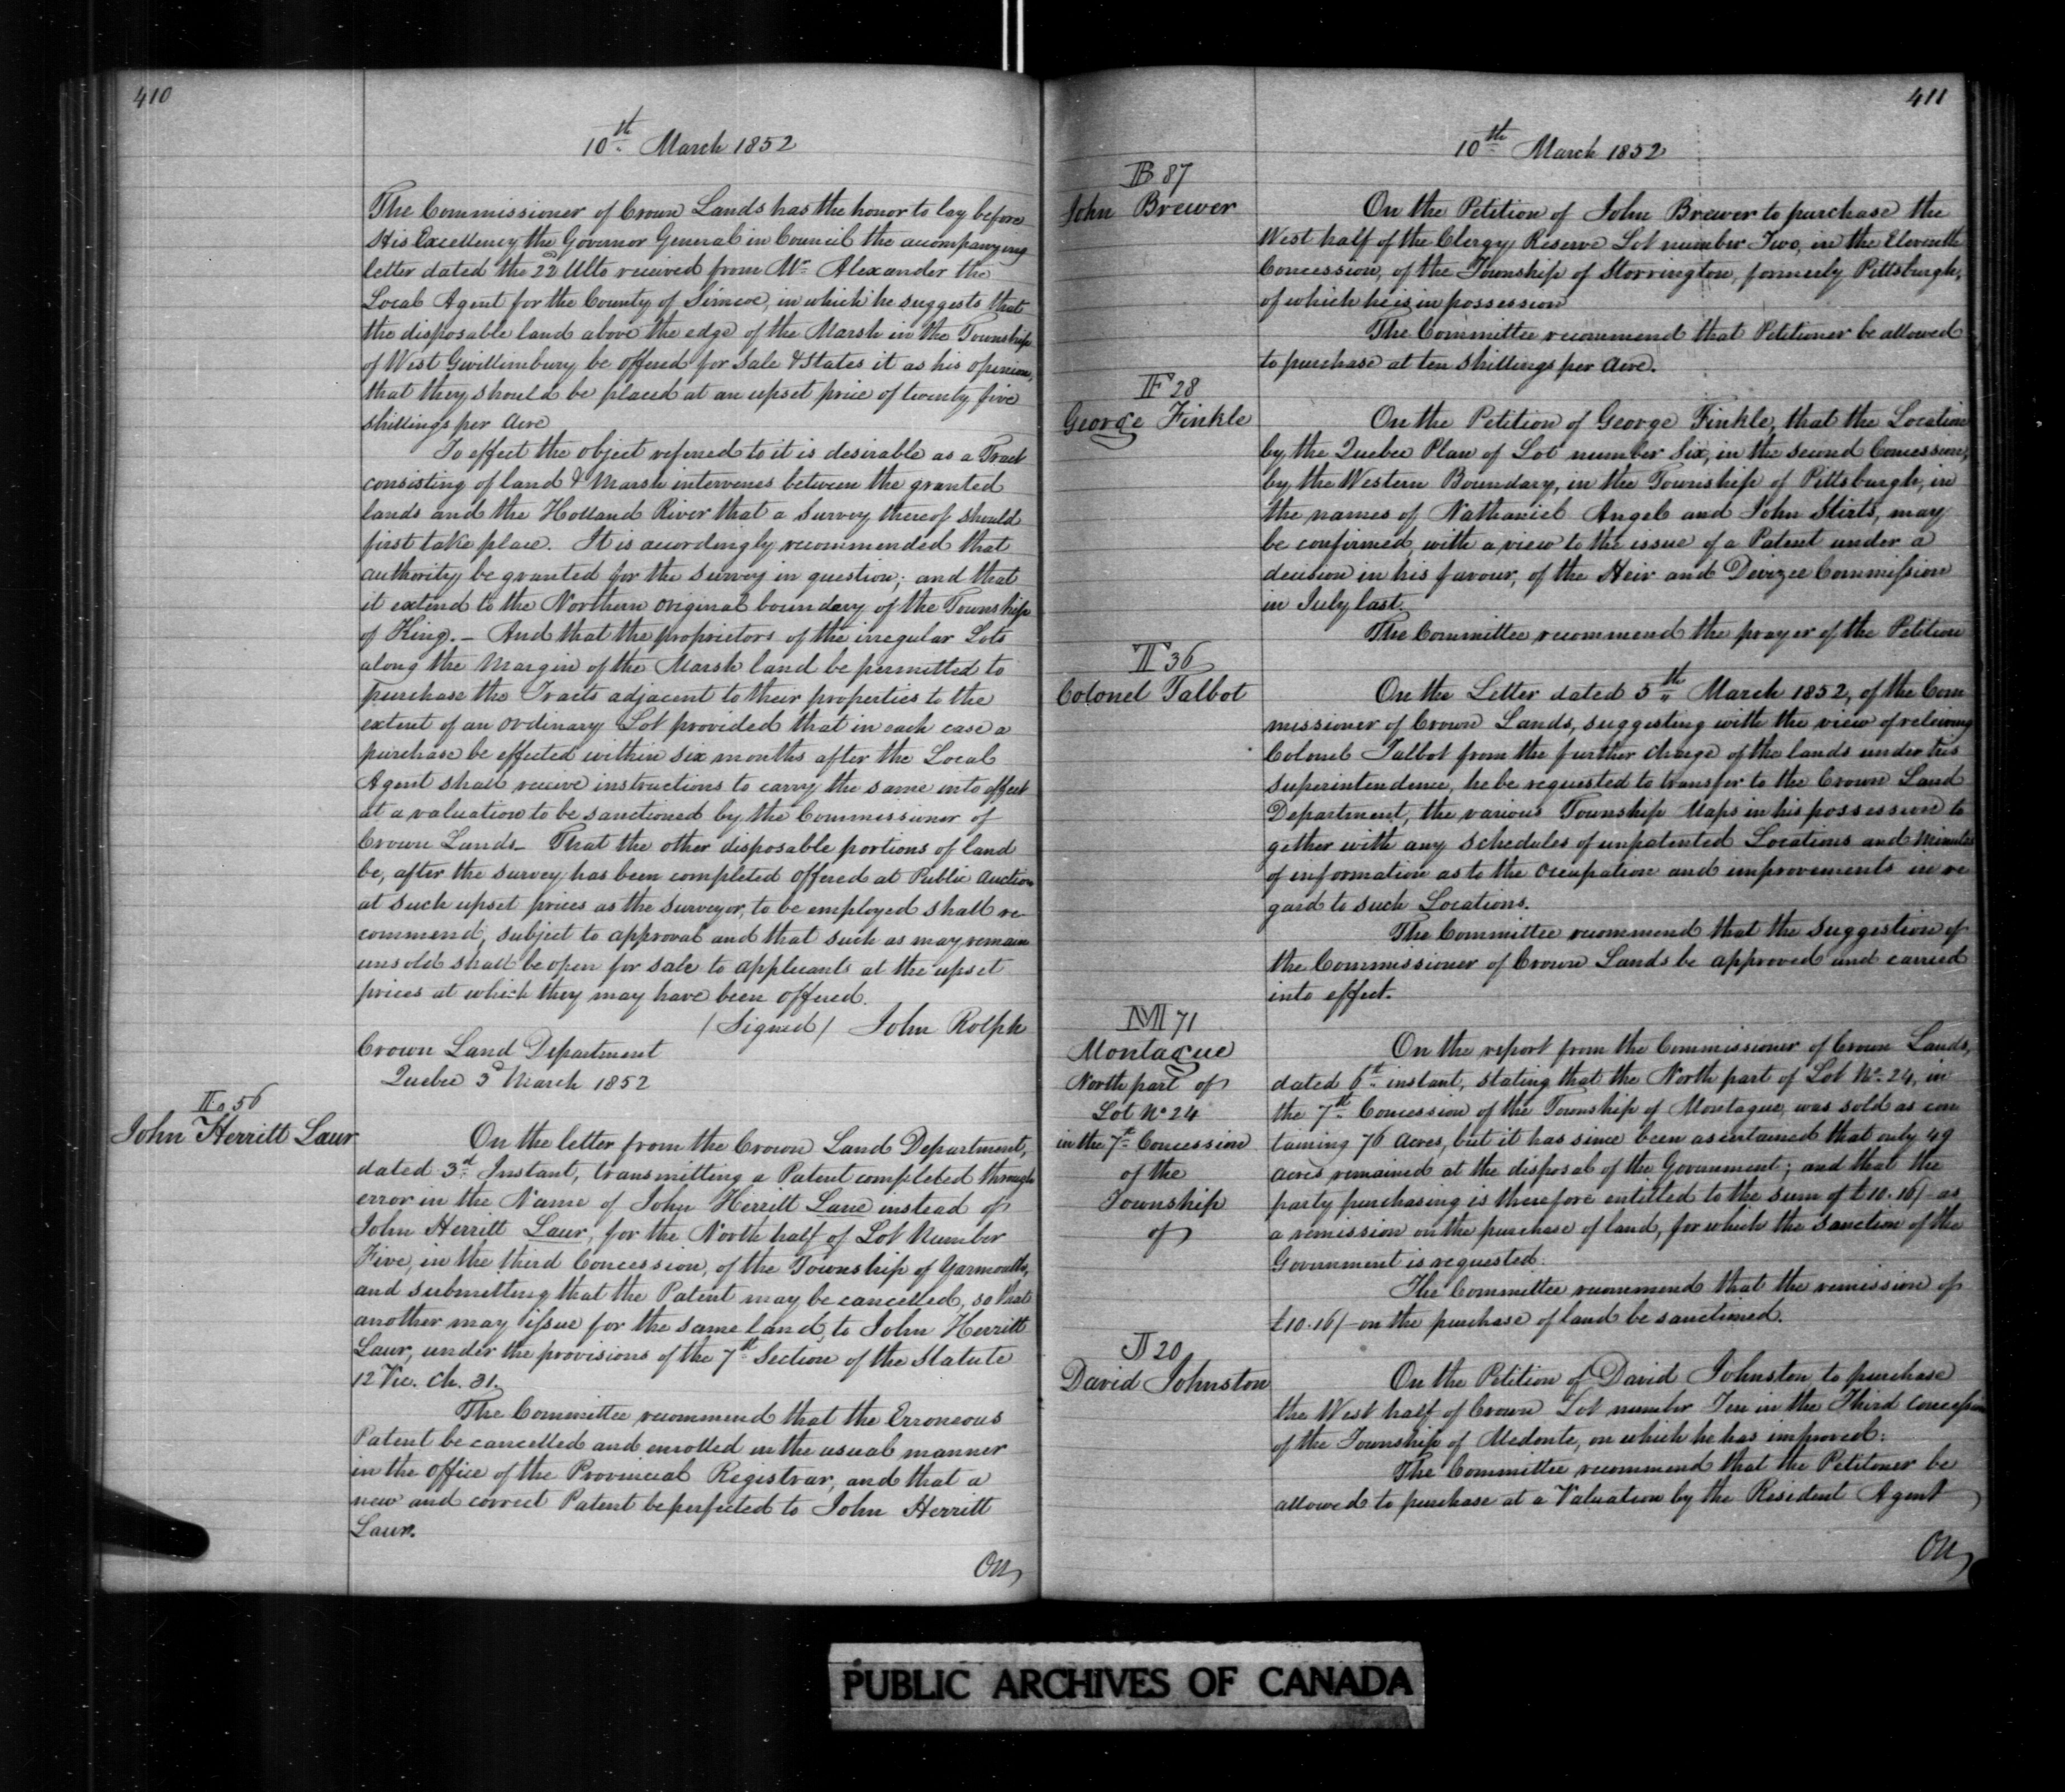 410
10th March 1852
The Commissioner of Crown Lands has the honor to lay before
His Excellency the Governor General in Council the accompanying
letter dated the 22 Ulto received from Mr Alexander the
Local Agent for the County of Simcoe, in which he suggests that
the disposable land above the edge of the Marsh in the Township
of West Gwillimbury be offered for Sale & States it as his opinion,
that they should be placed at an upset price of twenty five
shillings per Acre
To effect the object referred to it is desirable as a Tract
consisting of land & Marsh intervenes between the granted
lands and the Holland River that a Survey thereof should
first take place. It is accordingly recommended that
authority be granted for the Survey in question; and that
it extend to the Northern Original boundary of the Township
of King. - And that the proprietors of the irregular Lots
along the Margin of the Marsh land be permitted to
purchase the Tracts adjacent to their properties to the
extent of an Ordinary Lot provided that in each case a
purchase be effected within six months after the Local
Agent shall receive instructions to carry the same into effect
at a valuation to be sanctioned by the Commissioner of
Crown Lands - That the other disposable portions of land
be, after the survey has been completed offered at Public Auction
at such upset prices as the Surveyor, to be employed shall re-
commend, subject to approval and that such as may remain
unsold shall be open for sale to applicants at the upset
prices at which they may have been offered.
(Signed) John Rolph
Crown Land Department
Quebec 3d March 1852
L 56
John Herritt Laur
On the letter from the Crown Land Department,
dated 3rd Instant, transmitting a Patent completed through
error in the Name of John Herritt Lane instead of
John Herritt Laur, for the North half of Lot Number
Five, in the third Concession, of the Township of Yarmouth,
and submitting that the Patent may be cancelled, so that
another may issue for the same land to John Herritt
Laur, under the provisions of the 7th Section of the Statute
12 Vic. Ch. 31.
The Committee recommend that the Erroneous
Patent be cancelled and enrolled in the usual manner
in the Office of the Provincial Registrar, and that a
new and correct Patent be perfected to John Herritt
Laur.
On
411
10th March 1852
B 87
John Brewer
On the Petition of John Brewer to purchase the
West half of the Clergy Reserve Lot number Two, in the Eleventh
Concession, of the Township of Storrington, formerly Pittsburgh,
of which he is in possession
The Committee recommend that Petitioner be allowed
to purchase at ten shillings per Acre.
F 28
George Finkle
On the Petition of George Finkle, that the Location
by the Quebec Plan of Lot number Six, in the second Concession,
by the Western Boundary, in the Township of Pittsburgh, in
the names of Nathaniel Angel and John Stirts, may
be confirmed with a view to the issue of a Patent under a
decision in his favour, of the Heir and Devizee Commission
in July last.
The Committee recommend the prayer of the Petition
T 36
Colonel Talbot
On the Letter dated 5th March 1852, of the Com
missioner of Crown Lands, suggesting with the view of relieving
Colonel Talbot from the further charge of the lands under his
Superintendence, he be requested to transfer to the Crown Land
Department, the various Township Maps in his possession to
gether with any Schedules of unpatented Locations and Minutes
of information as to the Occupation and improvements in re
gard to such Locations.
The Committee recommend that the Suggestion of
the Commissioner of Crown Lands be approved and carried
into effect.
M 71
Montague
North part of
Lot No 24
in the 7th Concession
of the
Township
of
On the report from the Commissioner of Crown Lands,
dated 6th instant, stating that the North part of Lot No 24, in
the 7th Concession of the Township of Montague, was sold as con
taining 76 Acres, but it has since been ascertained that only 49
Acres remained at the disposal of the Government; and that the
party purchasing is therefore entitled to the sum of £10.16/- as
a remission on the purchase of land, for which the Sanction of the
Government is requested.
The Committee recommend that the remission of
£10.16/- on the purchase of land be sanctioned.
J 20
David Johnston
On the Petition of David Johnston to purchase
the West half of Crown Lot number Ten in the Third Concession
of the Township of Medonte, on which he has improved.
The Committee recommend that the Petitoner be
allowed to purchase at a Valuation by the Resident Agent
On
PUBLIC ARCHIVES OF CANADA